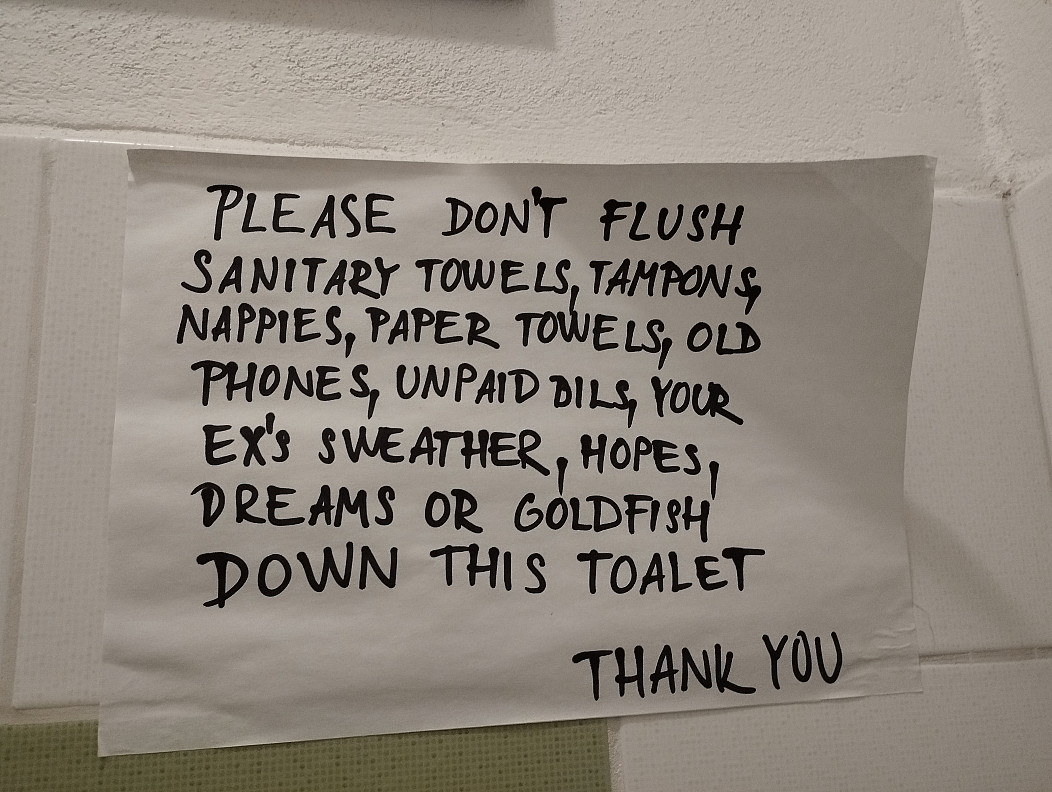 PLEASE DON'T FLUSH
SANITARY TOWELS, TAMPONS,
NAPPIES, PAPER TOWELS, OLD
PHONES, UNPAID BILS, YOUR
EX'S SWEATHER, HOPES,
DREAMS OR GOLDFISH
DOWN THIS TOALET
THANK YOU